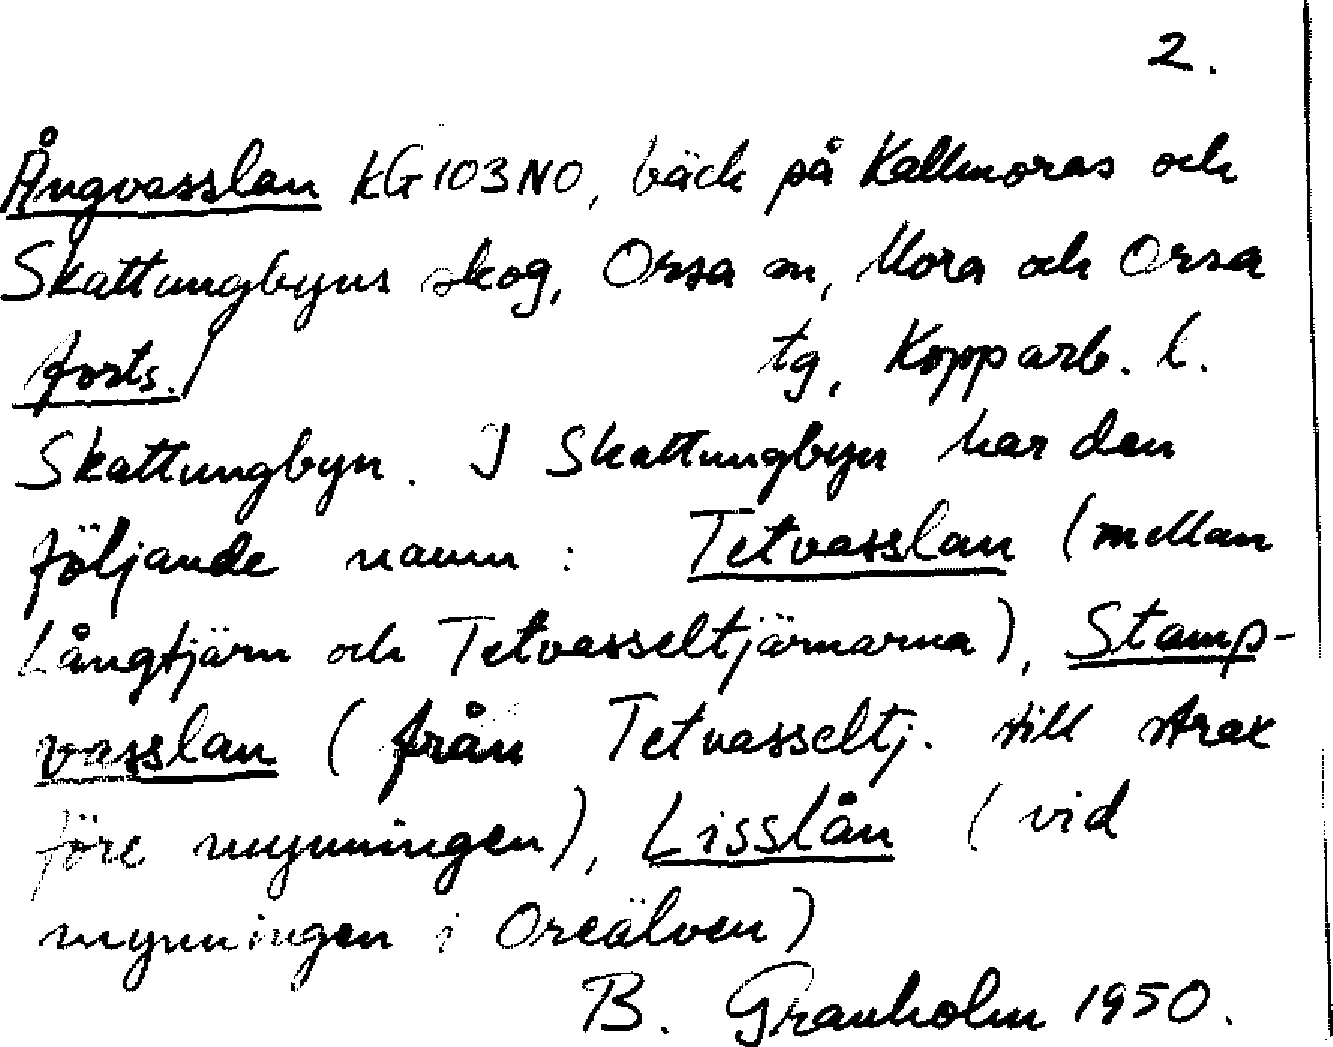 2.
Ångvasslan KG103NO, bäck på Kallmoras och
Skattungbyns skog, Orsa sn, Mora och Orsa
forts./ tg, Kopparb. l.
Skattungbyn. I Skattungbyn har den
följande namn: Tetvasslan (mellan
Långtjärn och Tetvasseltjärnarna), Stamp-
vasslan (från Tetvasseltj. till strax
före mynningen), Lisslån (vid
mynningen i Oreälven)
B. Granholm 1950.